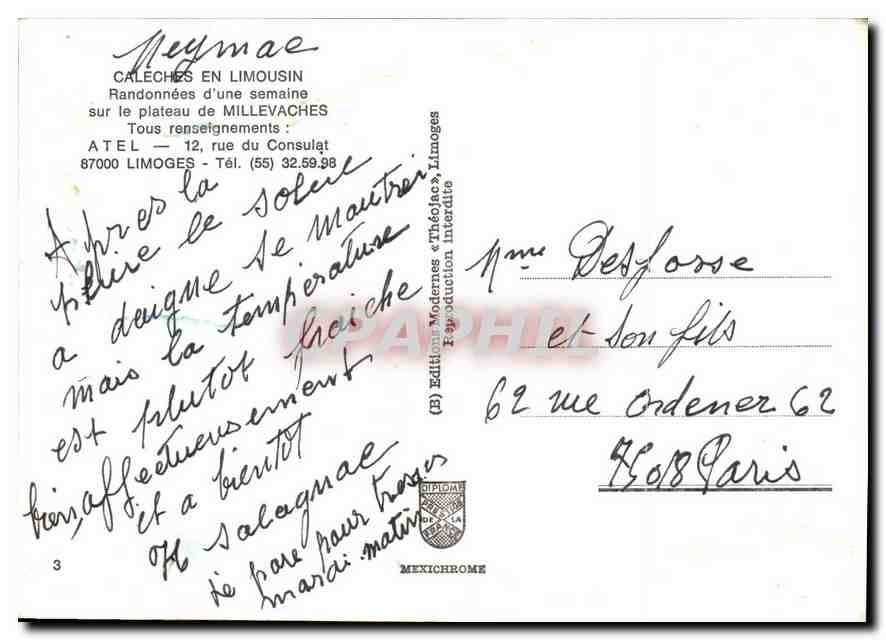 Meymac
CALECHES EN LIMOUSIN
Randonnées d'une semaine
sur le plateau de MILLEVACHES
Tous renseignements :
ATEL — 12, rue du Consulat
87000 LIMOGES - Tél. (55) 32.59.98
Apres la
pluire le soleil
a daigne se montrer
mais la température
est plutot fraiche
bien affectueusement
et a bientot
H Salagnac
je pare pour
mardi matin
3
(B) Editions Modernes «Théojac», Limoges
Reproduction interdite
CPAPHIL
DIPLOME
PRESTIGE
DE LA
FRANCE
MEXICHROME
Mme Desfosse
et son fils
62 rue ordener 62
75018 Paris